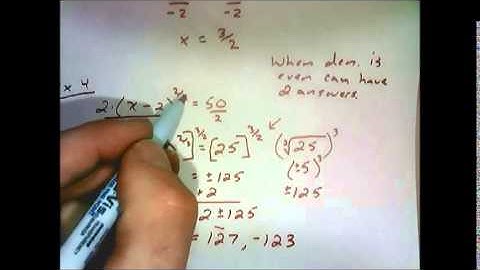 -2 -2
x = 3/2
When den. is
even can have
2 answers.
x 4
2·(x-2)^2/3 = 50
2
2/3]^3/2 = [25]^3/2 (√25)^3
(±5)^3
= ±125 ±125
+2
2 ± 125
= 127, -123
Vis